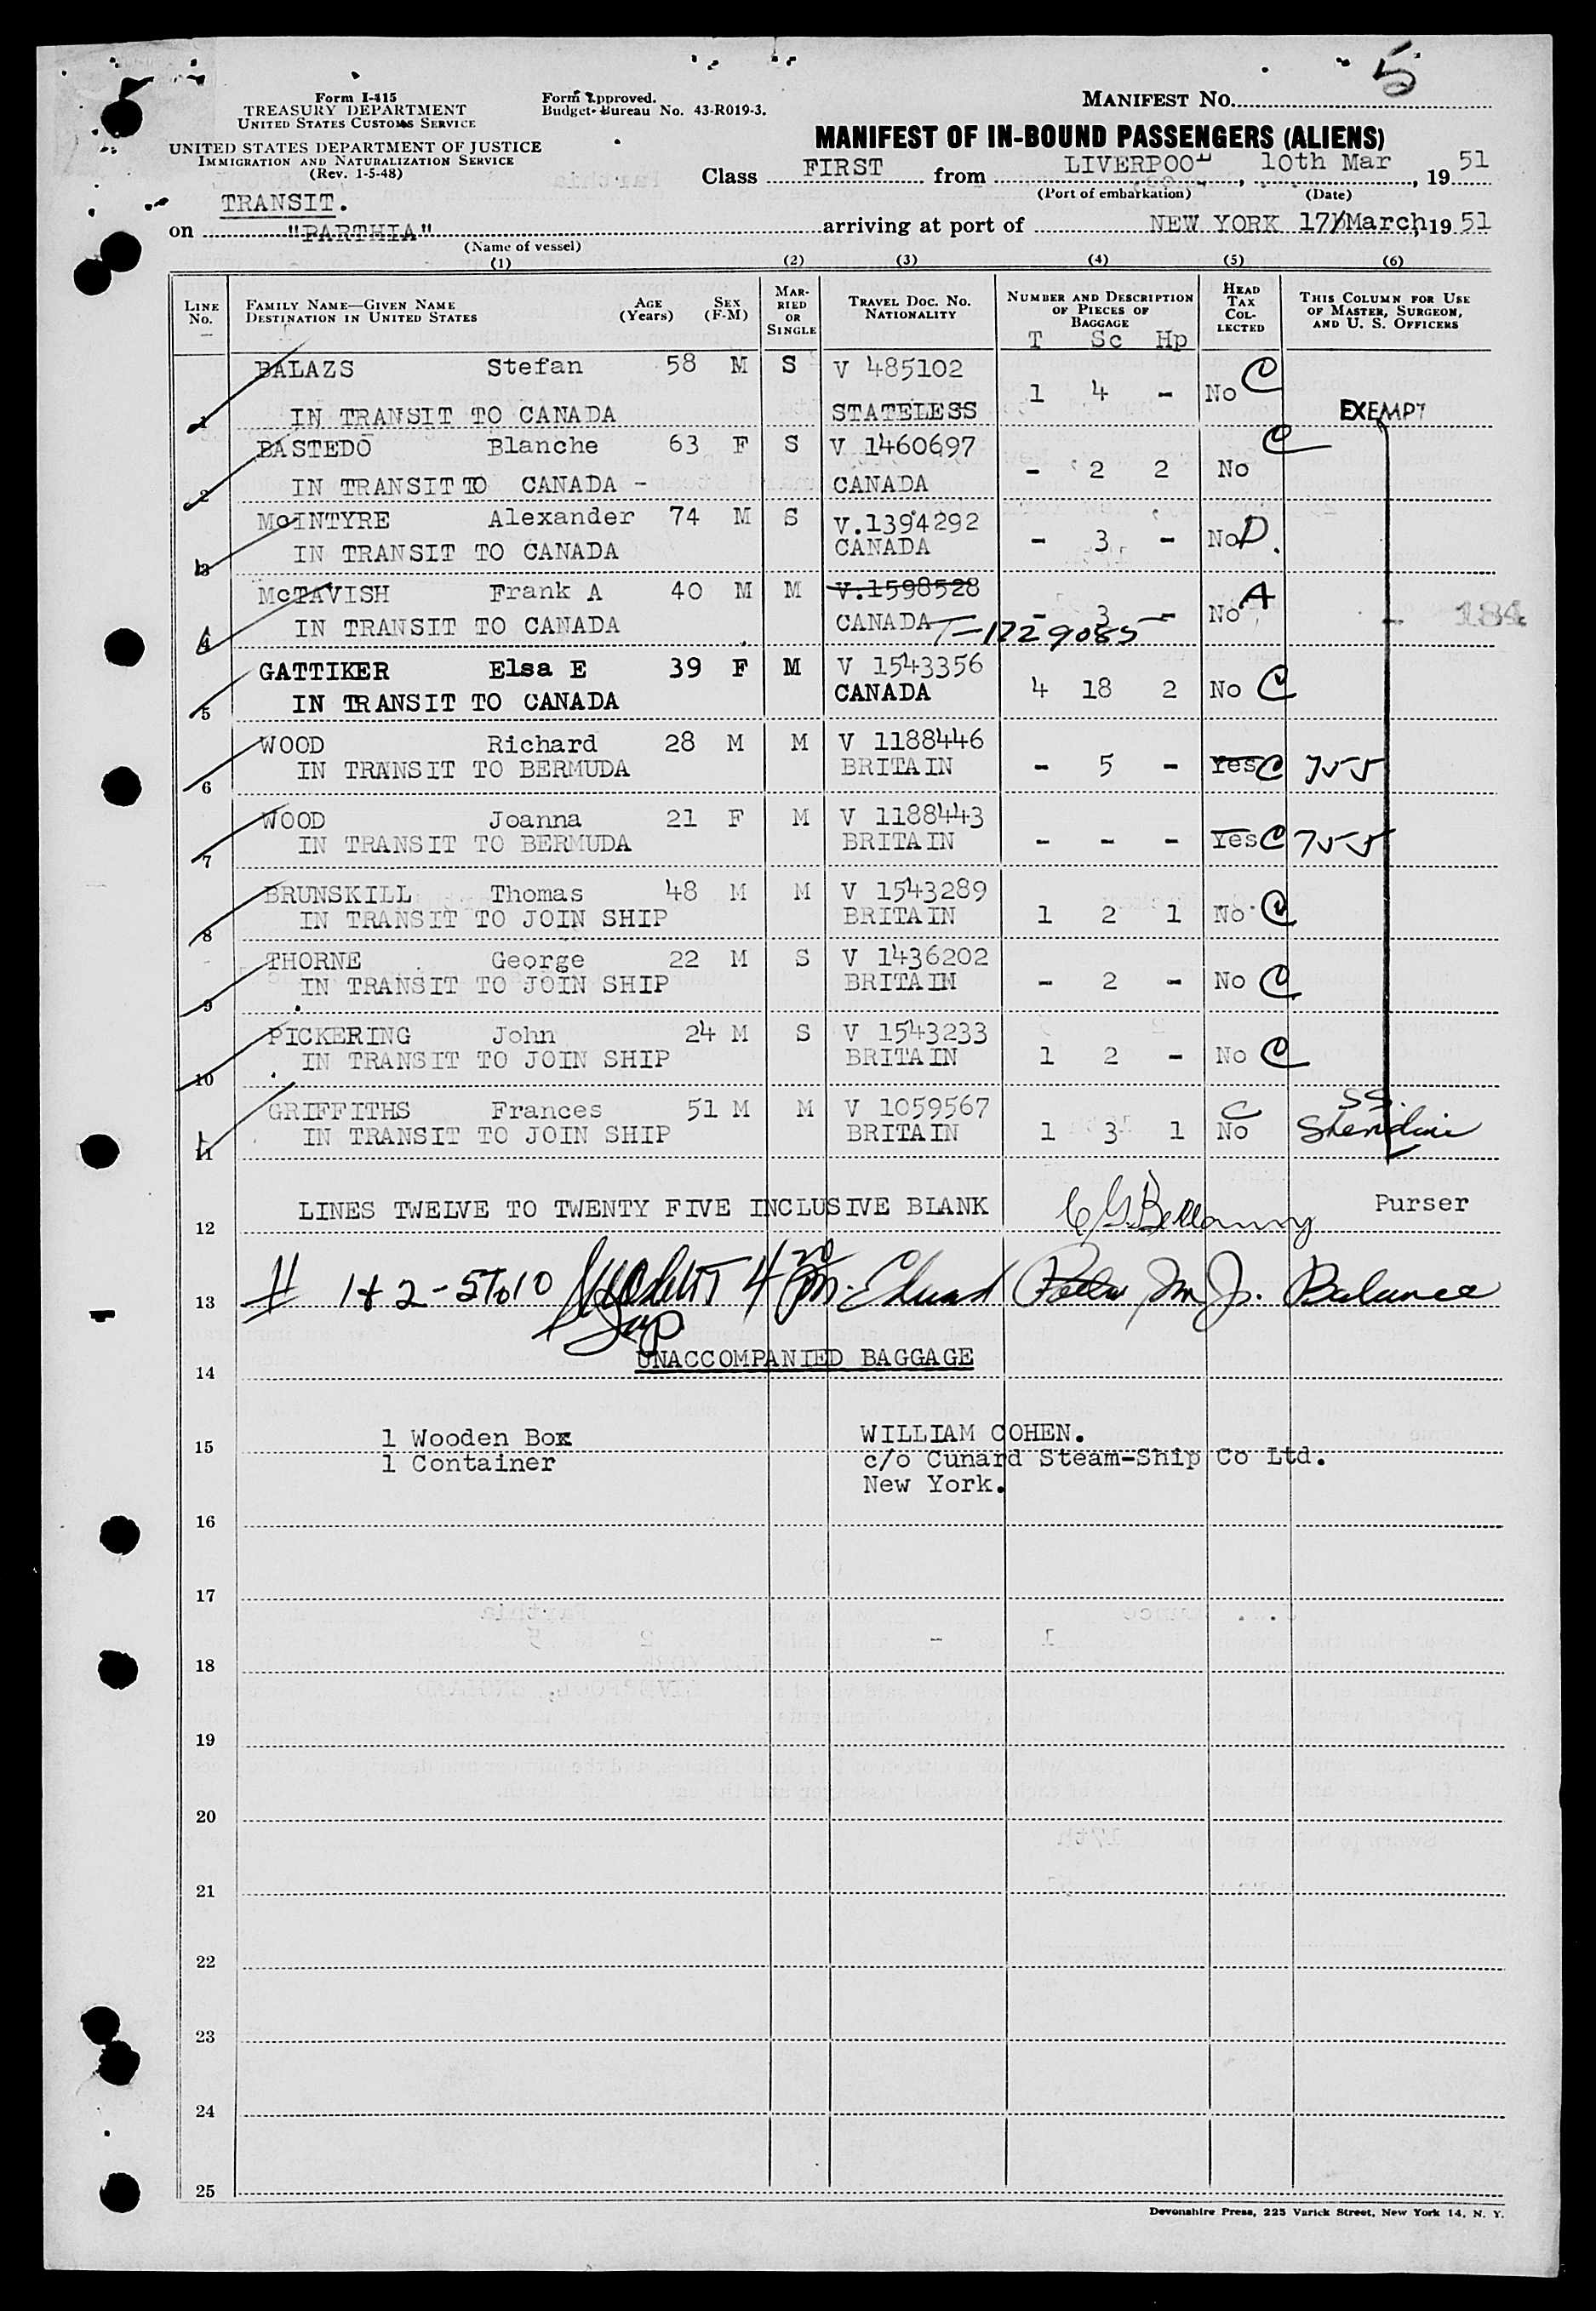 5
Form I-415
TREASURY DEPARTMENT
UNITED STATES CUSTOMS SERVICE
Form Approved.
Budget Bureau No. 43-R019-3.
MANIFEST NO.
UNITED STATES DEPARTMENT OF JUSTICE
IMMIGRATION AND NATURALIZATION SERVICE
(Rev. 1-5-48)
MANIFEST OF IN-BOUND PASSENGERS (ALIENS)
Class FIRST from LIVERPOOL, 10th Mar, 19 51
(Port of embarkation) (Date)
TRANSIT.
on "PARTHIA" arriving at port of NEW YORK 17 March, 19 51
(Name of vessel)
(1) (2) (3) (4) (5) (6)
LINE No. FAMILY NAME—GIVEN NAME DESTINATION IN UNITED STATES AGE (Years) SEX (F-M) MARRIED OR SINGLE TRAVEL DOC. NO. NATIONALITY NUMBER AND DESCRIPTION OF PIECES OF BAGGAGE HEAD TAX COLLECTED THIS COLUMN FOR USE OF MASTER, SURGEON, AND U. S. OFFICERS
T Sc Hp
BALAZS Stefan 58 M S V 485102
1 4 - No C
1 IN TRANSIT TO CANADA STATELESS EXEMPT
BASTEDO Blanche 63 F S V 1460697 C
- 2 2 No
2 IN TRANSIT TO CANADA - CANADA
McINTYRE Alexander 74 M S V.1394292
3 IN TRANSIT TO CANADA CANADA - 3 - No D.
McTAVISH Frank A 40 M M V.1598528
4 IN TRANSIT TO CANADA CANADA - 3 - No A - 184
T-1729085
GATTIKER Elsa E 39 F M V 1543356
5 IN TRANSIT TO CANADA CANADA 4 18 2 No C
WOOD Richard 28 M M V 1188446
6 IN TRANSIT TO BERMUDA BRITAIN - 5 - Yes C 755
WOOD Joanna 21 F M V 1188443
7 IN TRANSIT TO BERMUDA BRITAIN - - - Yes C 755
BRUNSKILL Thomas 48 M M V 1543289
8 IN TRANSIT TO JOIN SHIP BRITAIN 1 2 1 No C
THORNE George 22 M S V 1436202
9 IN TRANSIT TO JOIN SHIP BRITAIN - 2 - No C
PICKERING John 24 M S V 1543233
10 IN TRANSIT TO JOIN SHIP BRITAIN 1 2 - No C
GRIFFITHS Frances 51 M M V 1059567 C SS.
11 IN TRANSIT TO JOIN SHIP BRITAIN 1 3 1 No
12 LINES TWELVE TO TWENTY FIVE INCLUSIVE BLANK Purser
13 # 1 & 2 - 5 To 10 Balance
UNACCOMPANIED BAGGAGE
14
1 Wooden Box WILLIAM COHEN.
15
1 Container c/o Cunard Steam-Ship Co Ltd.
New York.
16
17
18
19
20
21
22
23
24
25
Devonshire Press, 225 Varick Street, New York 14, N. Y.